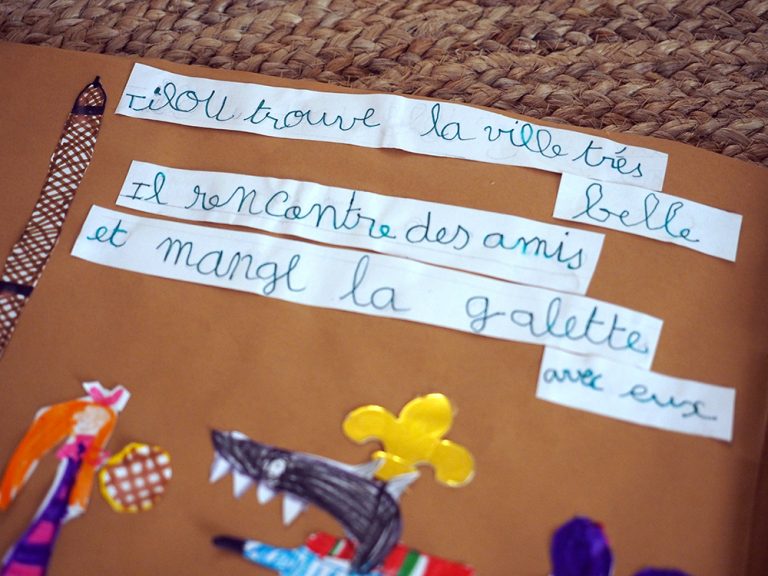 Tilou trouve la ville trés
belle
Il rencontre des amis
et mange la galette
avec eux